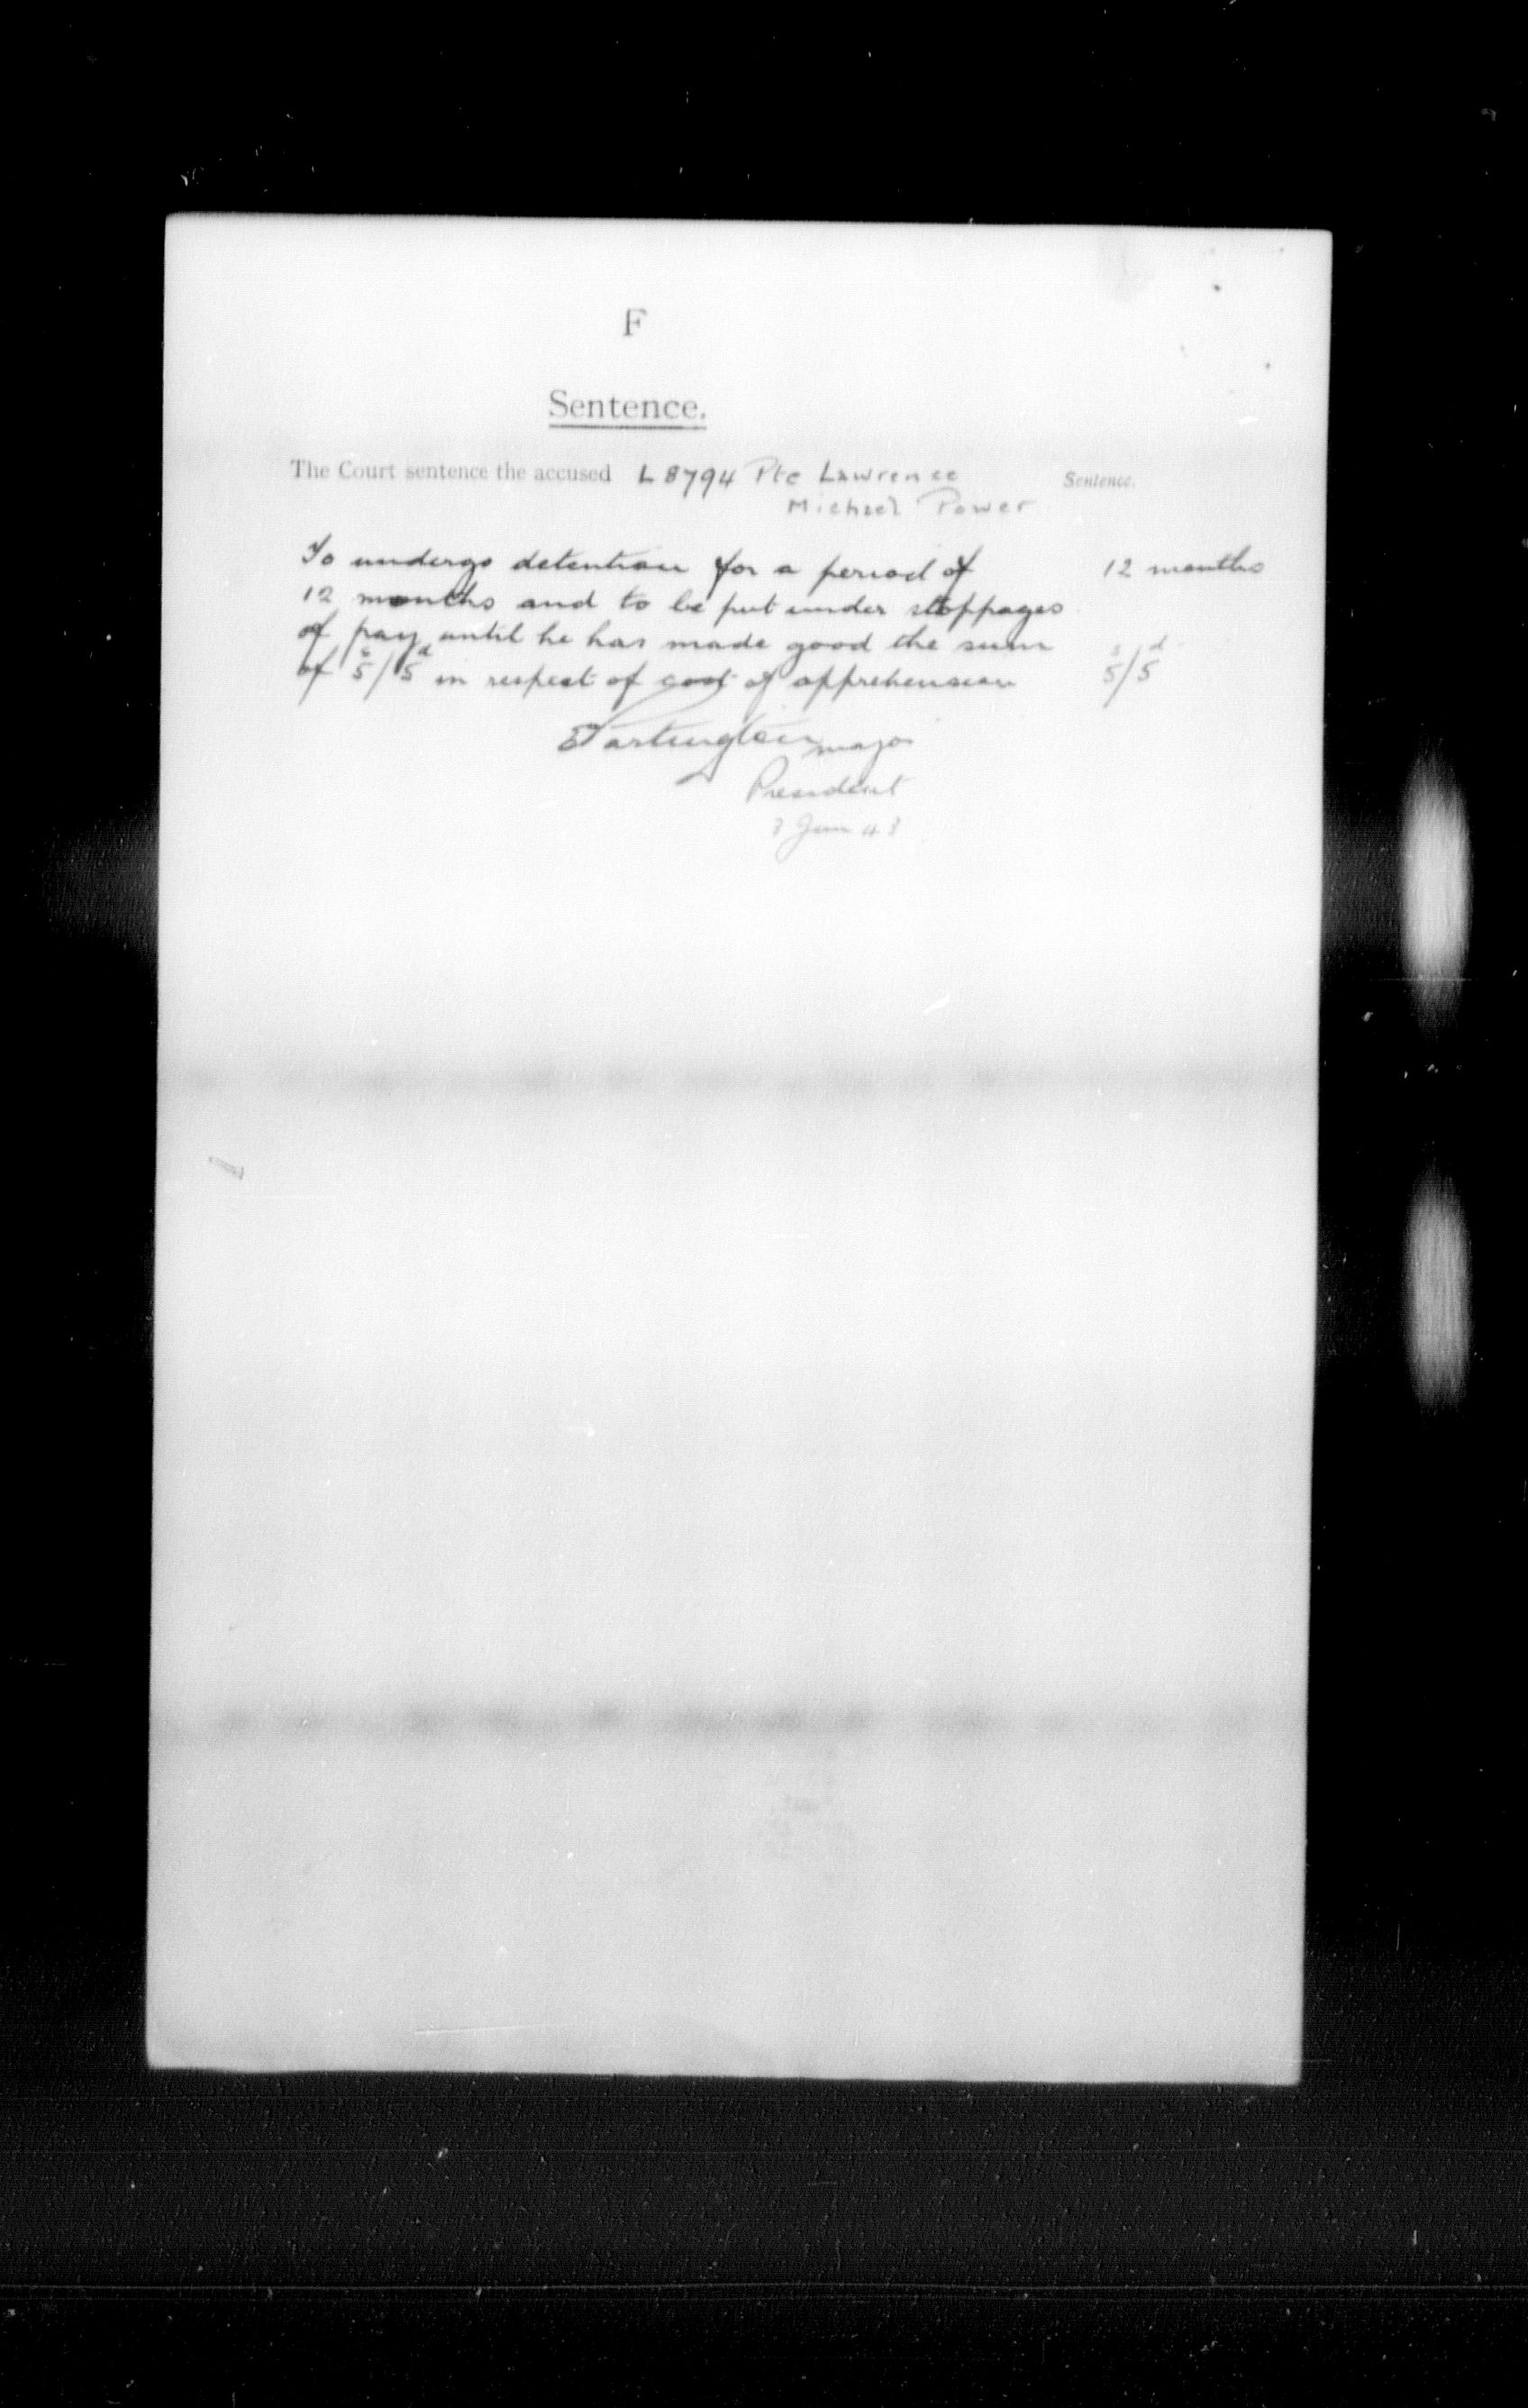 F
Sentence.
The Court sentence the accused L 8794 Pte Lawrence Sentence.
Michael Power
To undergo detention for a period of 12 months
12 months and to be put under stoppages
of pay until he has made good the sum
of 5s/5d in respect of cost of apprehension 5s/5d
Partington Major
President
Jan 43